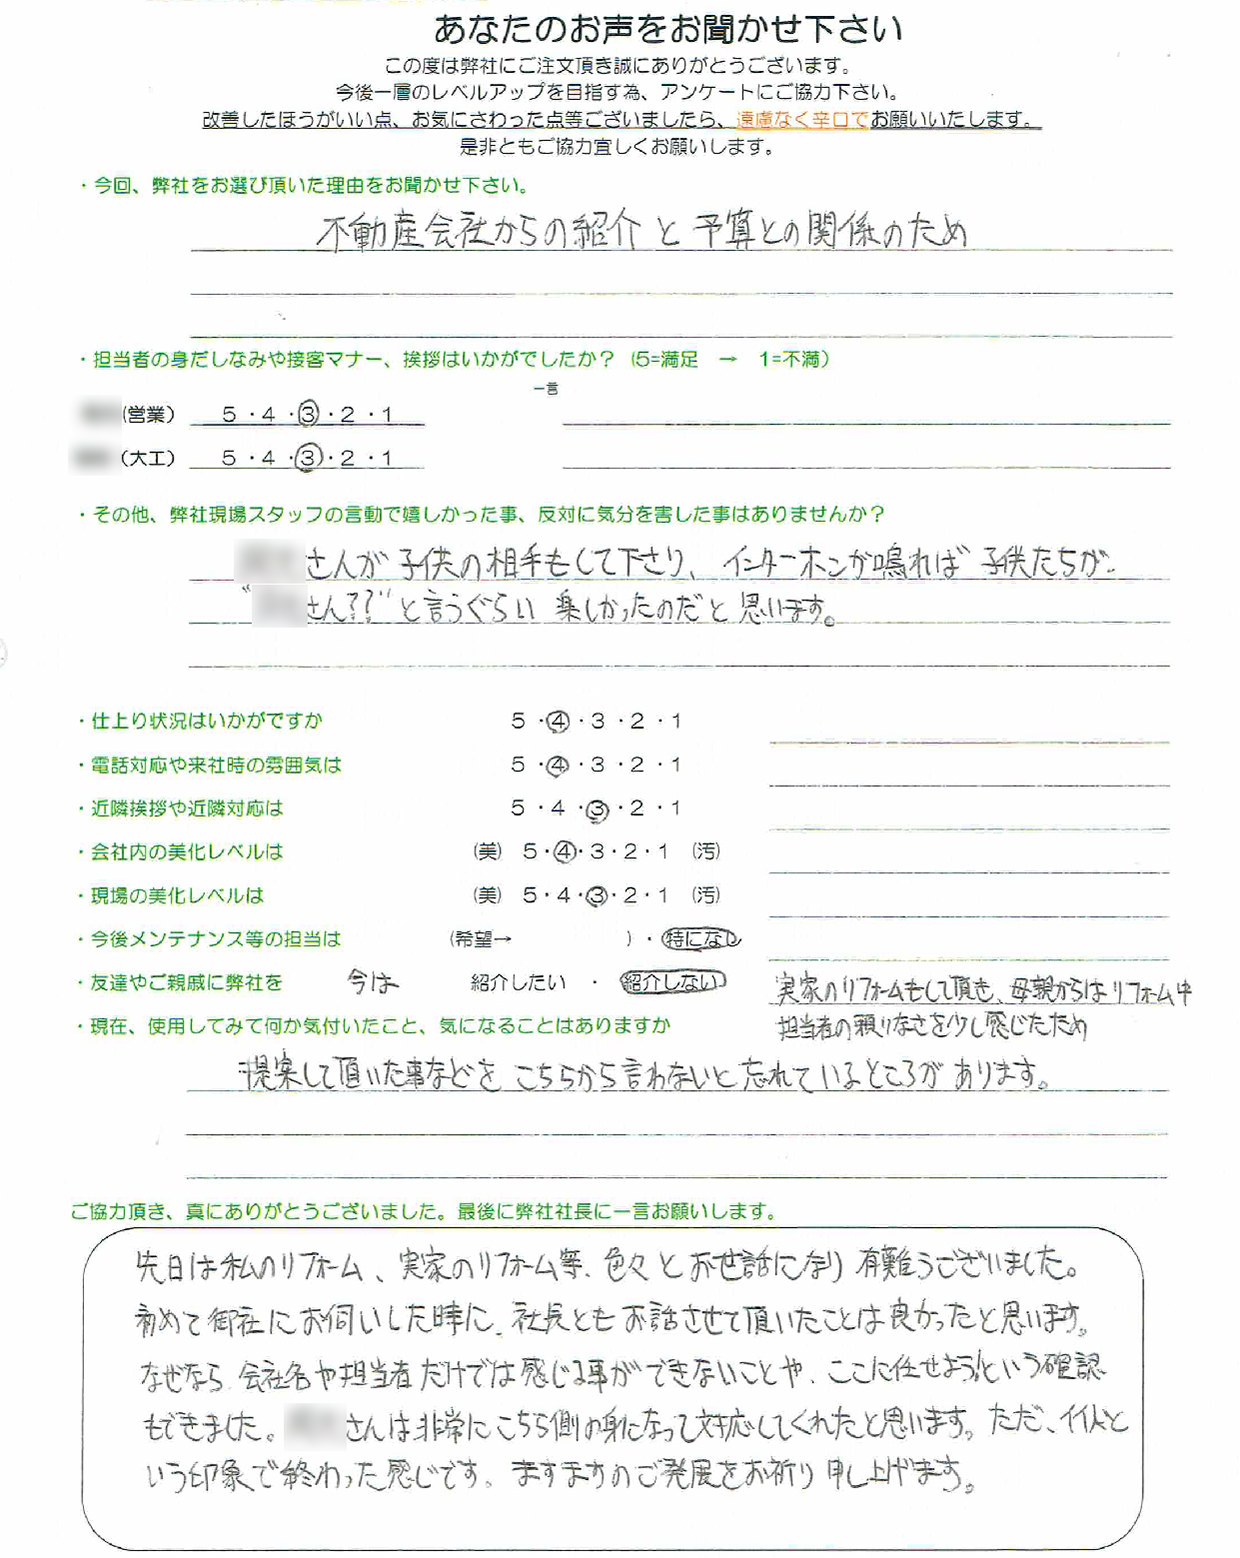 あなたのお声をお聞かせ下さい
この度は弊社にご注文頂き誠にありがとうございます。
今後一層のレベルアップを目指す為、アンケートにご協力下さい。
改善したほうがいい点、お気にさわった点等ございましたら、遠慮なく辛口でお願いいたします。
是非ともご協力宜しくお願いします。
・今回、弊社をお選び頂いた理由をお聞かせ下さい。
不動産会社からの紹介と予算との関係のため
・担当者の身だしなみや接客マナー、挨拶はいかがでしたか？（5=満足　→　1=不満）
一言
（営業）　5・4・3・2・1
（大工）　5・4・3・2・1
・その他、弊社現場スタッフの言動で嬉しかった事、反対に気分を害した事はありませんか？
さんが子供の相手もして下さり、インターホンが鳴れば子供たちが
“さん??”と言うぐらい楽しかったのだと思います。
・仕上り状況はいかがですか　5・4・3・2・1
・電話対応や来社時の雰囲気は　5・4・3・2・1
・近隣挨拶や近隣対応は　5・4・3・2・1
・会社内の美化レベルは　（美）　5・4・3・2・1　（汚）
・現場の美化レベルは　（美）　5・4・3・2・1　（汚）
・今後メンテナンス等の担当は　（希望→　　　）・特になし
・友達やご親戚に弊社を　今は　紹介したい　・　紹介しない　実家のリフォームもして頂き、母親からはリフォーム中
担当者の頼りなさを少し感じたため
・現在、使用してみて何か気付いたこと、気になることはありますか
提案して頂いた事などをこちらから言わないと忘れているところがあります。
ご協力頂き、真にありがとうございました。最後に弊社社長に一言お願いします。
先日は私のリフォーム、実家のリフォーム等、色々とお世話になり有難うございました。
初めて御社にお伺いした時に、社長ともお話させて頂いたことは良かったと思います。
なぜなら、会社名や担当者だけでは感じる事ができないことや、ここに任せよう!という確認
もできました。さんは非常にこちら側の身になって対応してくれたと思います。ただ、イイ人と
いう印象で終わった感じです。ますますのご発展をお祈り申し上げます。